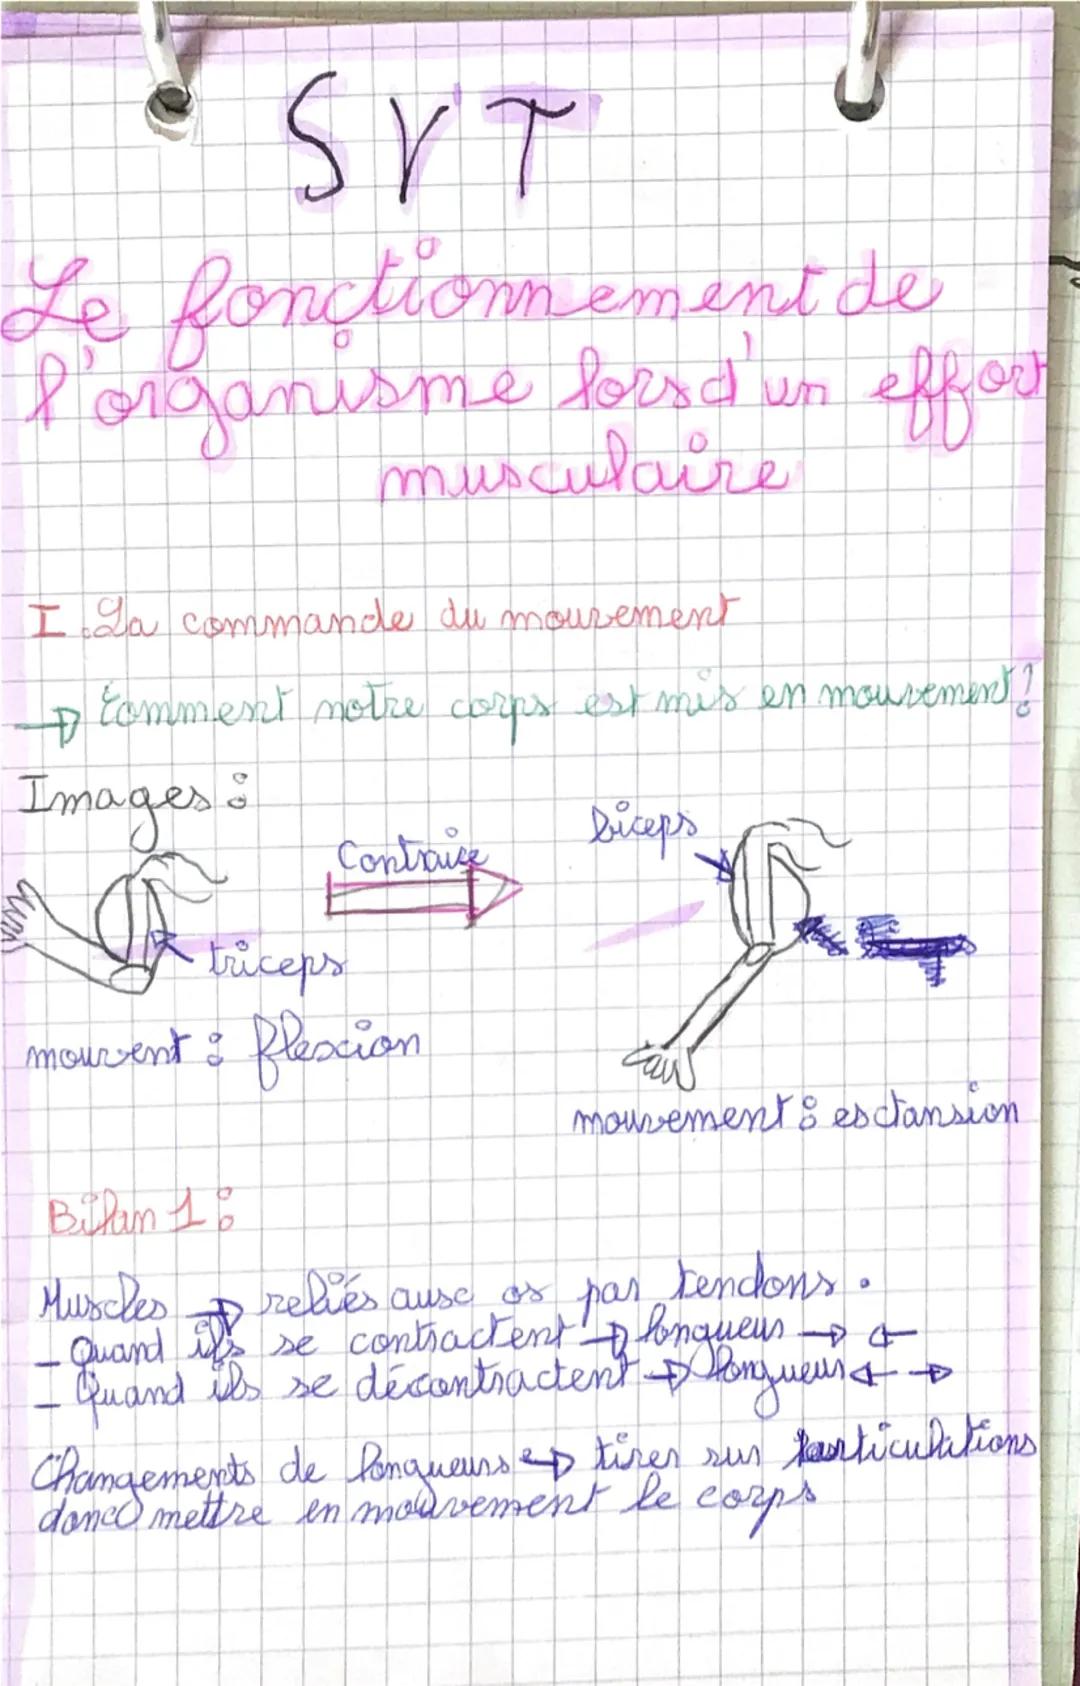 SVT
Le fonctionnement de
l'organisme lors d'un effort
musculaire
I. La commande du mouvement
→ Comment notre corps est mis en mouvement?
Images :
Contraire
biceps
triceps
mouvent : flexion
mouvement : extansion
Bilan 1 :
Muscles → reliés aux os par tendons.
- Quand ils se contractent → longueur → ←
- Quand ils se décontractent → longueur ← →
Changements de longueurs → tirer sur articulations
donc mettre en mouvement le corps